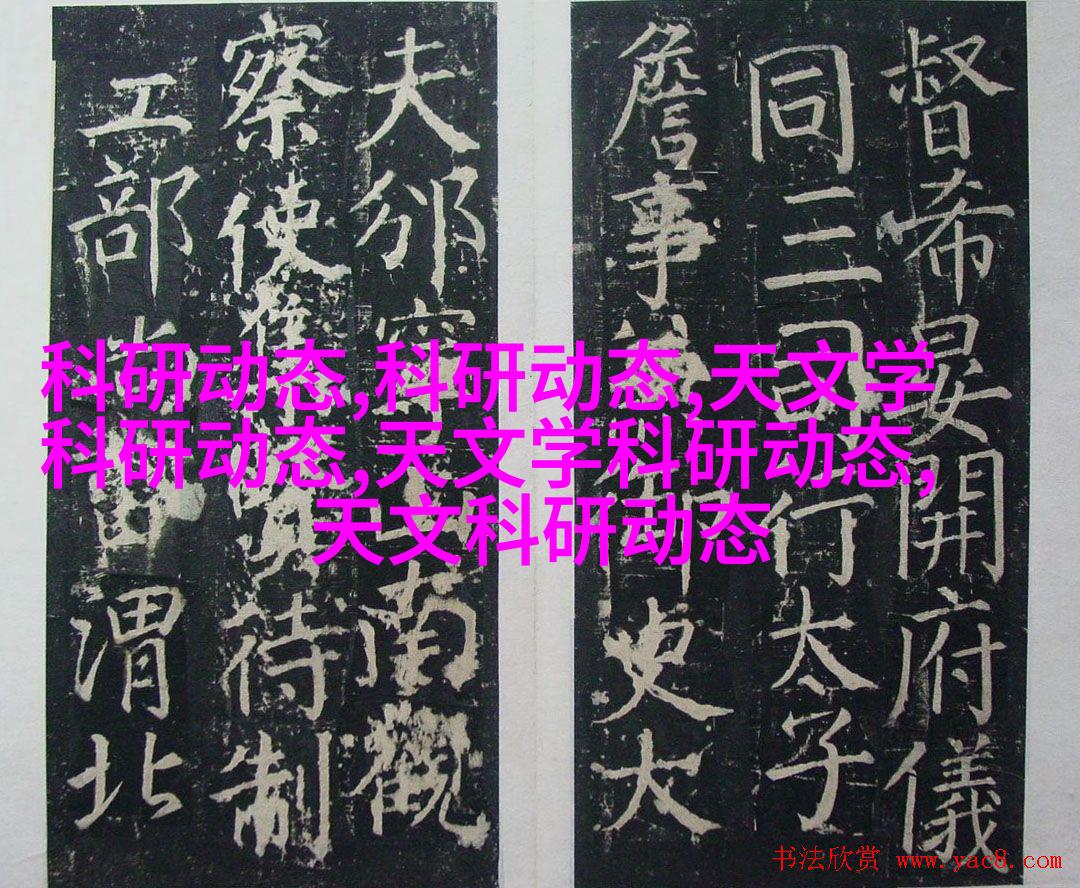 科研动态,科研动态,天文学
科研动态,天文学科研动态,
天文科研动态
督希晏開府儀
同三司行太子
詹事史大
夫邠南觀
察使待制
工部渭北
书法欣赏 www.yac8.com